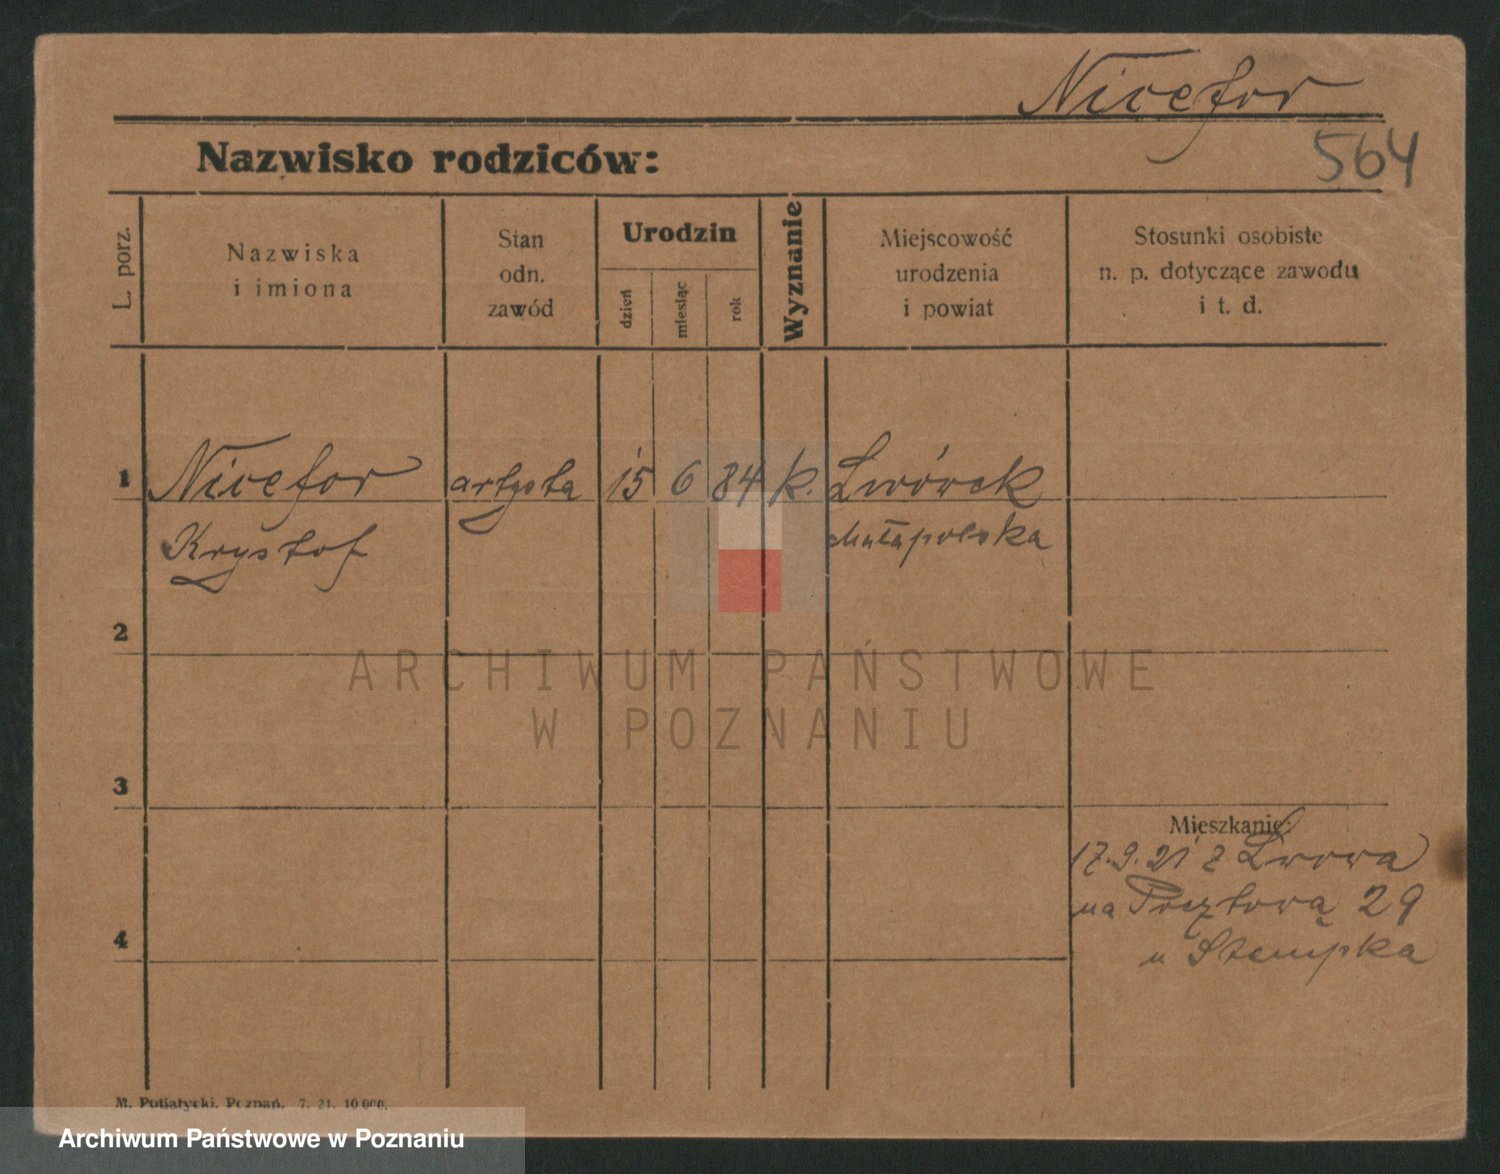 Nicefor
564
Nazwisko rodziców:
L. porz.
Nazwiska
i imiona
Stan
odn.
zawód
Urodzin
dzień
miesiąc
rok
Wyznanie
Miejscowość
urodzenia
i powiat
Stosunki osobiste
n. p. dotyczące zawodu
i t. d.
1 Nicefor artysta 15 6 84 k. Lwówek
Krystof Małapolska
2
ARCHIWUM PAŃSTWOWE
W POZNANIU
3
Mieszkanie:
17.9.21 z Lwowa
na Pocztową 29
u Stempka
4
M. Putiatycki, Poznań, 7. 21. 10 000.
Archiwum Państwowe w Poznaniu